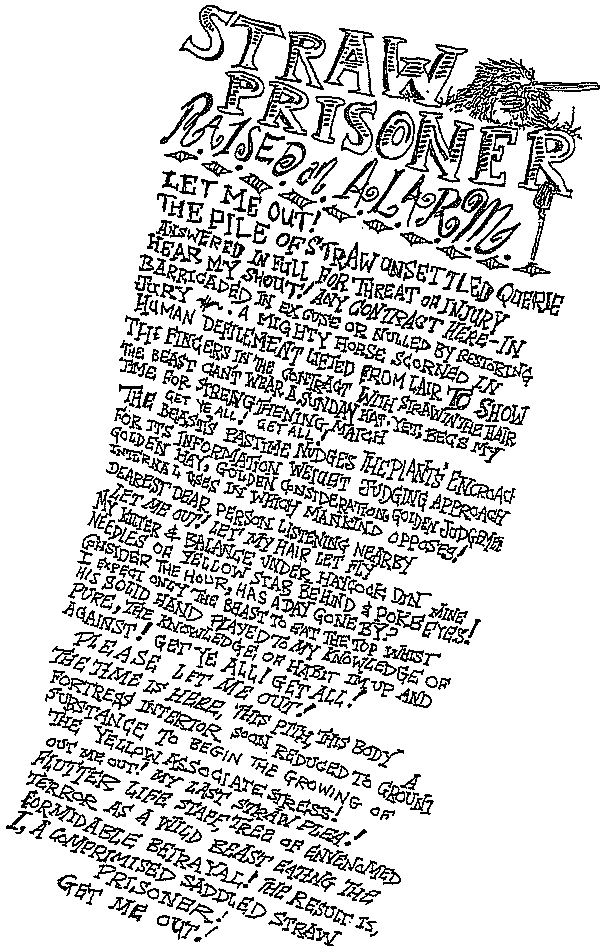 STRAW
PRISONER
RAISED ON ALARM.
LET ME OUT!
THE PILE OF STRAW UNSETTLED QUERIE
ANSWERED IN FULL FOR THREAT OR INJURY
HEAR MY SHOUT! ANY CONTRACT HERE-IN
BARRICADED IN EXCUSE OR NULLED BY RESTORING
JURY A MIGHTY HORSE SCORNED IN
HUMAN DEFILEMENT LIFTED FROM LAIR TO SHOW
THE FINGERS IN THE CONTRACT WITH STRAW IN THE HAIR
THE BEAST CAN'T WEAR A SUNDAY HAT. YET, BEG'S MY
TIME FOR STRENGTHENING MARCH
GET YE ALL! GET ALL!
THE BEAST'S PASTIME NUDGES THE PLANTS' ENCROACH
FOR IT'S INFORMATION WEIGHT JUDGING APPROACH
GOLDEN HAY, GOLDEN CONSIDERATION, GOLDEN JUDGEMEN
INTERNAL USES IN WHICH MANKIND OPPOSES!
DEAREST DEAR, PERSON LISTENING NEARBY
LET ME OUT! LET MY HAIR LET FLY
MY KILTER & BALANCE UNDER HAYCOCK DIN MINE!
NEEDLES OF YELLOW STAB BEHIND & POKE EYES!
CONSIDER THE HOUR, HAS A DAY GONE BY?
I EXPECT ONLY THE BEAST TO EAT THE TOP WHIST
HIS SOLID HAND PLAYED TO MY KNOWLEDGE OF
PURE, THE KNOWLEDGE OF HABIT I'M UP AND
AGAINST! GET YE ALL! GET ALL!
PLEASE LET ME OUT!
THE TIME IS HERE, THIS PITH, THIS BODY A
FORTRESS INTERIOR SOON REDUCED TO GROUND
SUBSTANCE TO BEGIN THE GROWING OF
THE YELLOW ASSOCIATE STRESS!
OUT ME OUT! MY LAST STRAW PLEA!
FLUTTER LIFE STAFF, TREE OF ENVENOMED
TERROR AS A WILD BEAST EATING THE
FORMIDABLE BETRAYAL! THE RESULT IS,
I, A COMPRIMISED SADDLED STRAW
PRISONER!
GET ME OUT!